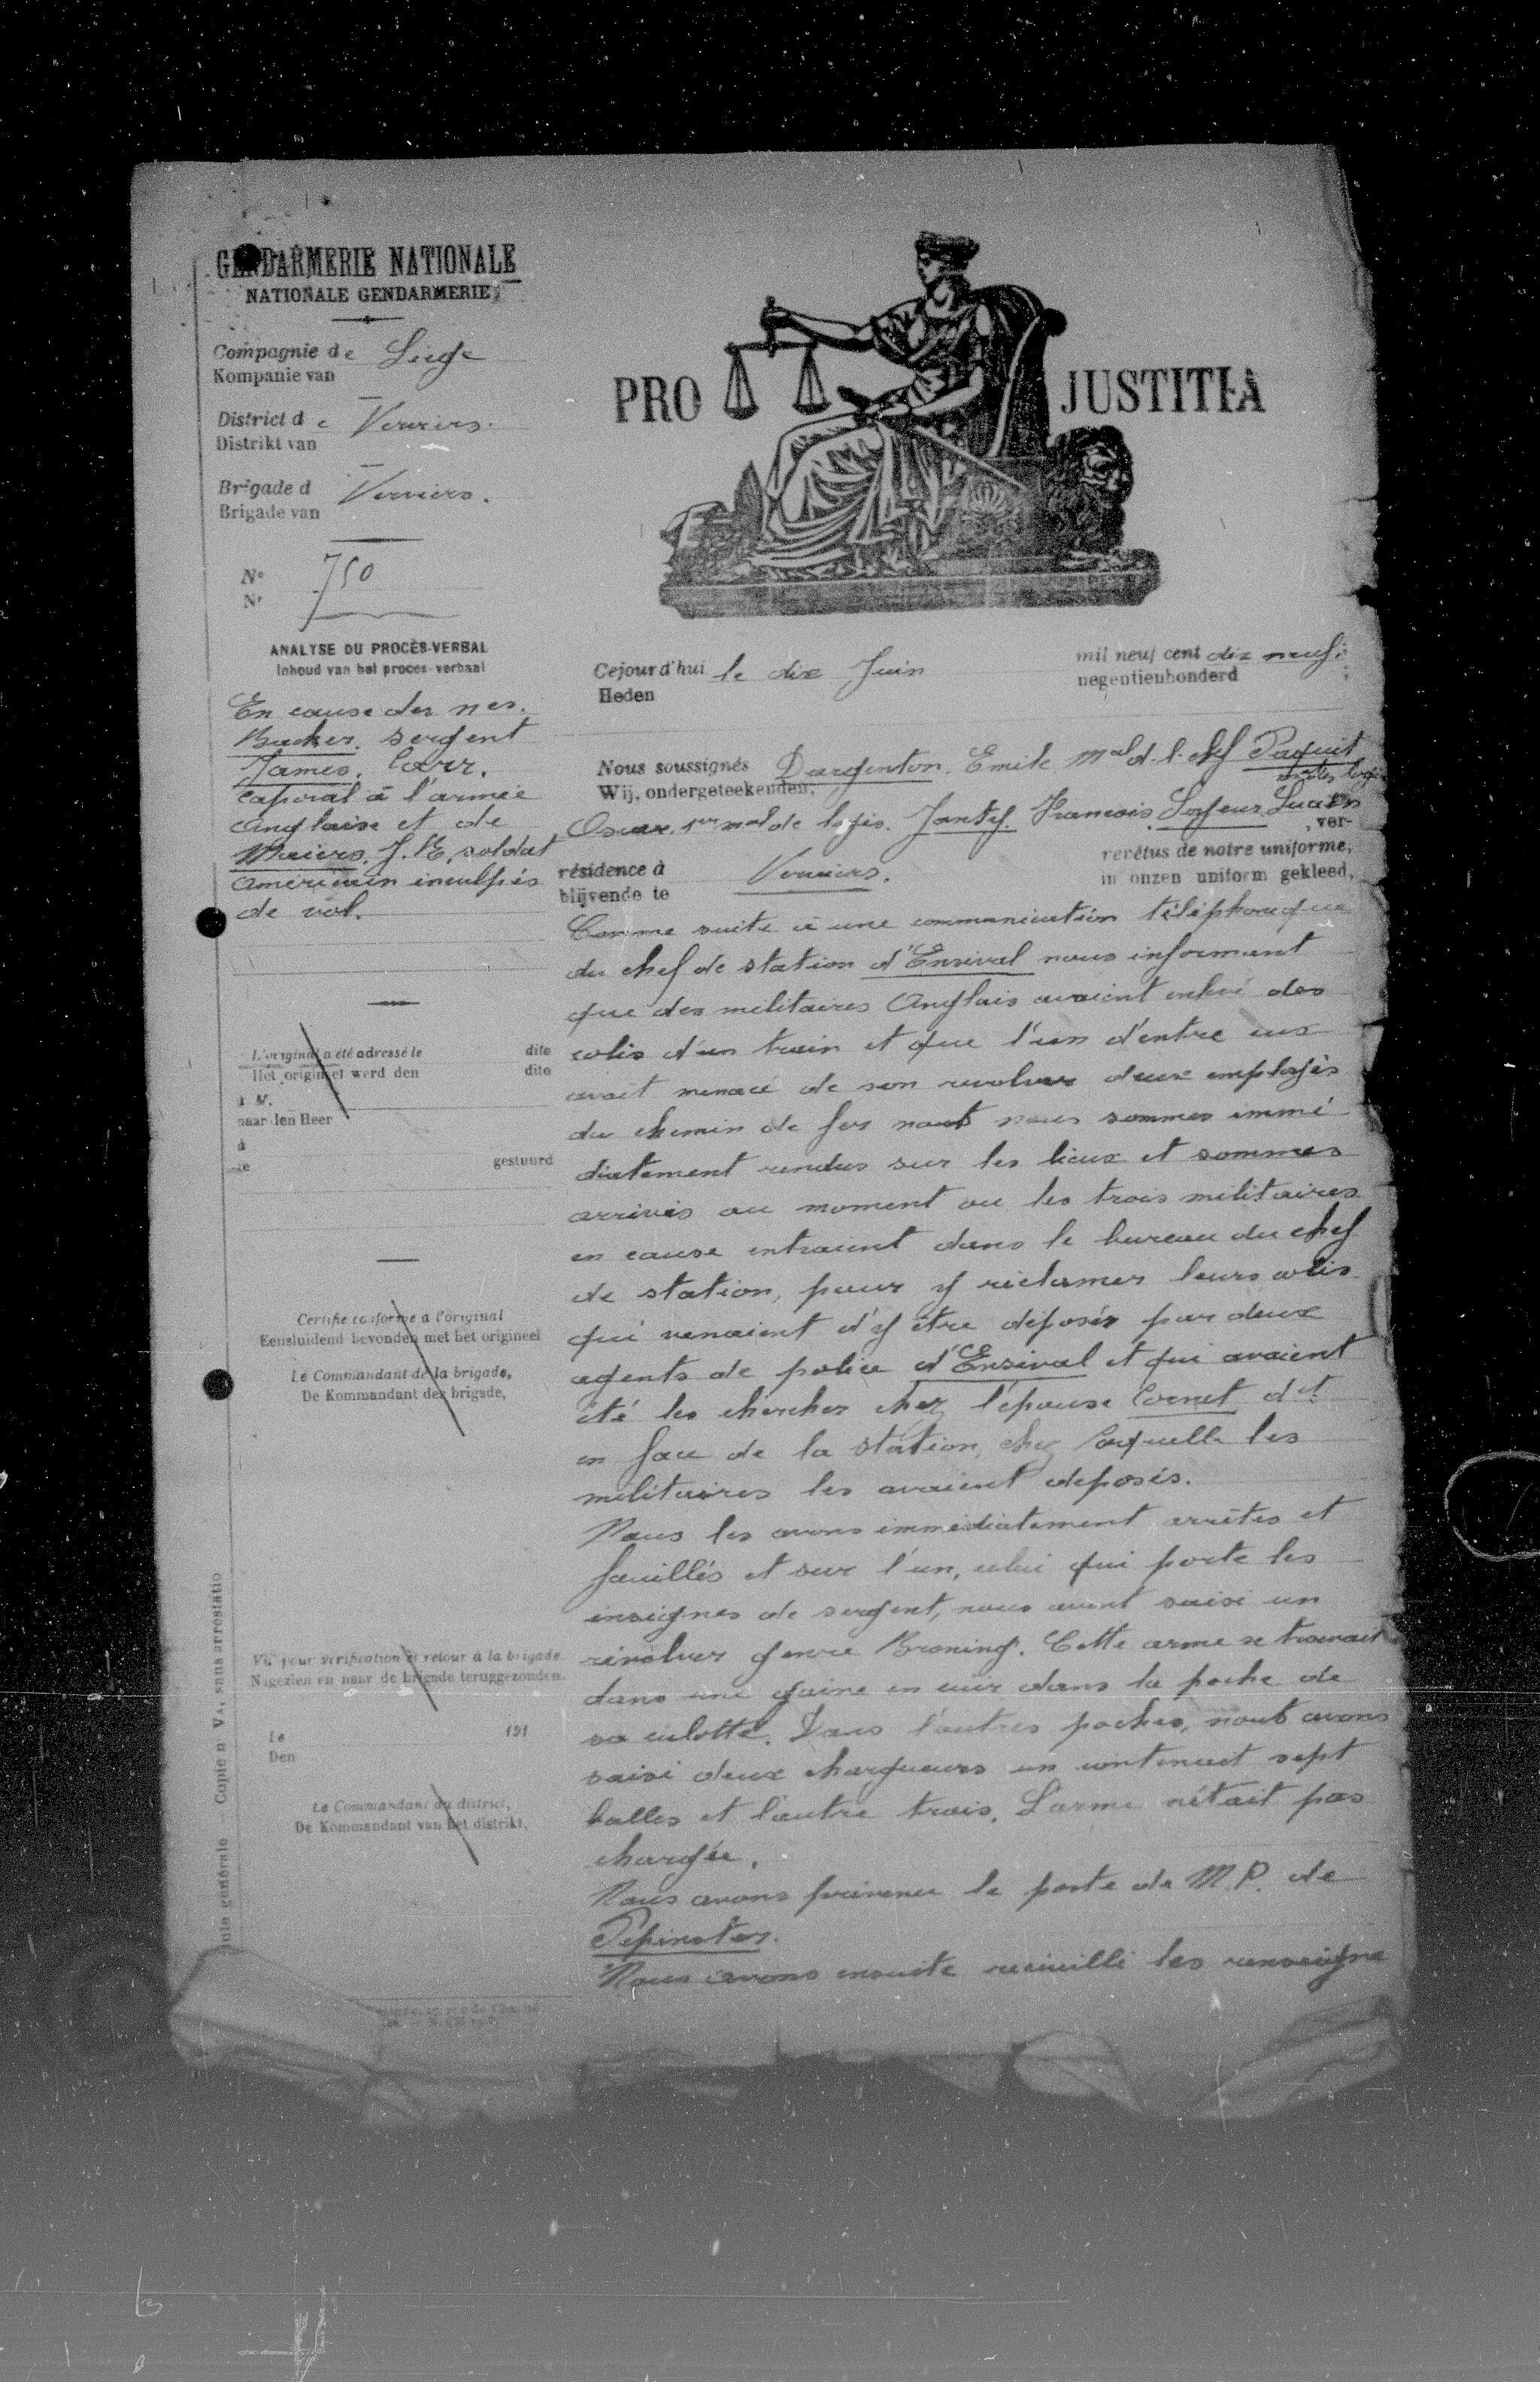 GENDARMERIE NATIONALE
NATIONALE GENDARMERIE
Compagnie de Liège
Kompanie van
District de Verviers.
Distrikt van
Brigade d Verviers.
Brigade van
No 750
Nr
ANALYSE DU PROCÈS-VERBAL
Inhoud van het proces-verbaal
En cause des nés.
Backer, sergent
James, Carr,
caporal à l'armée
Anglaise et de
J. E, soldat
américain inculpés
de vol.
L'original a été adressé le dito
Het origineel werd den dito
à M.
naar den Heer
à
te gestuurd
Certifié conforme à l'original
Eensluidend bevonden met het origineel
Le Commandant de la brigade,
De Kommandant der brigade,
Vu pour vérification et retour à la brigade
Nagezien en naar de brigade teruggezonden.
Le 191
Den
Le Commandant du district,
De Kommandant van het distrikt,
ule générale Copie n VA, sans arrestatio
PRO JUSTITIA
Cejourd'hui le dix Juin mil neuf cent dix neuf:
Heden negentienhonderd
Nous soussignés Dargenton, Emile Mal d. l. chef Paquit
Wij, ondergeteekenden, mdes logis
Oscar, 1er mal de logis. Jantÿ. Francois. Sayeur Lucien
, ver-
résidence à Verviers. revêtus de notre uniforme,
blijvende te in onzen uniform gekleed,
Comme suite à une communication téléphonique
du chef de station d'Ensival nous informant
que des militaires Anglais avaient enlevé des
colis d'un train et que l'un d'entre eux
avait menacé de son revolver deux employés
du chemin de fer nous nous sommes immé
diatement rendus sur les lieux et sommes
arrivés au moment ou les trois militaires
en cause entraient dans le bureau du chef
de station, pour y réclamer leurs colis
qui venaient d'y être déposés par deux
agents de police d'Ensival et qui avaient
été les chercher chez l'épouse Cornet dt
en face de la station, chez laquelle les
militaires les avaient déposés.
Nous les avons immédiatement arrêtés et
fouillés et sur l'un, celui qui porte les
insignes de sergent, nous avont saisi un
révolver genre Broning. Cette arme se trouvait
dans une gaine en cuir dans la poche de
sa culotte. Dans l'autres poches, nous avons
saisi deux chargeurs un contenait sept
balles et l'autre trois. L'arme n'était pas
chargée.
Nous avons prévenu le poste de M.P. de
Pepinster.
Nous avons ensuite recueilli les renseigne